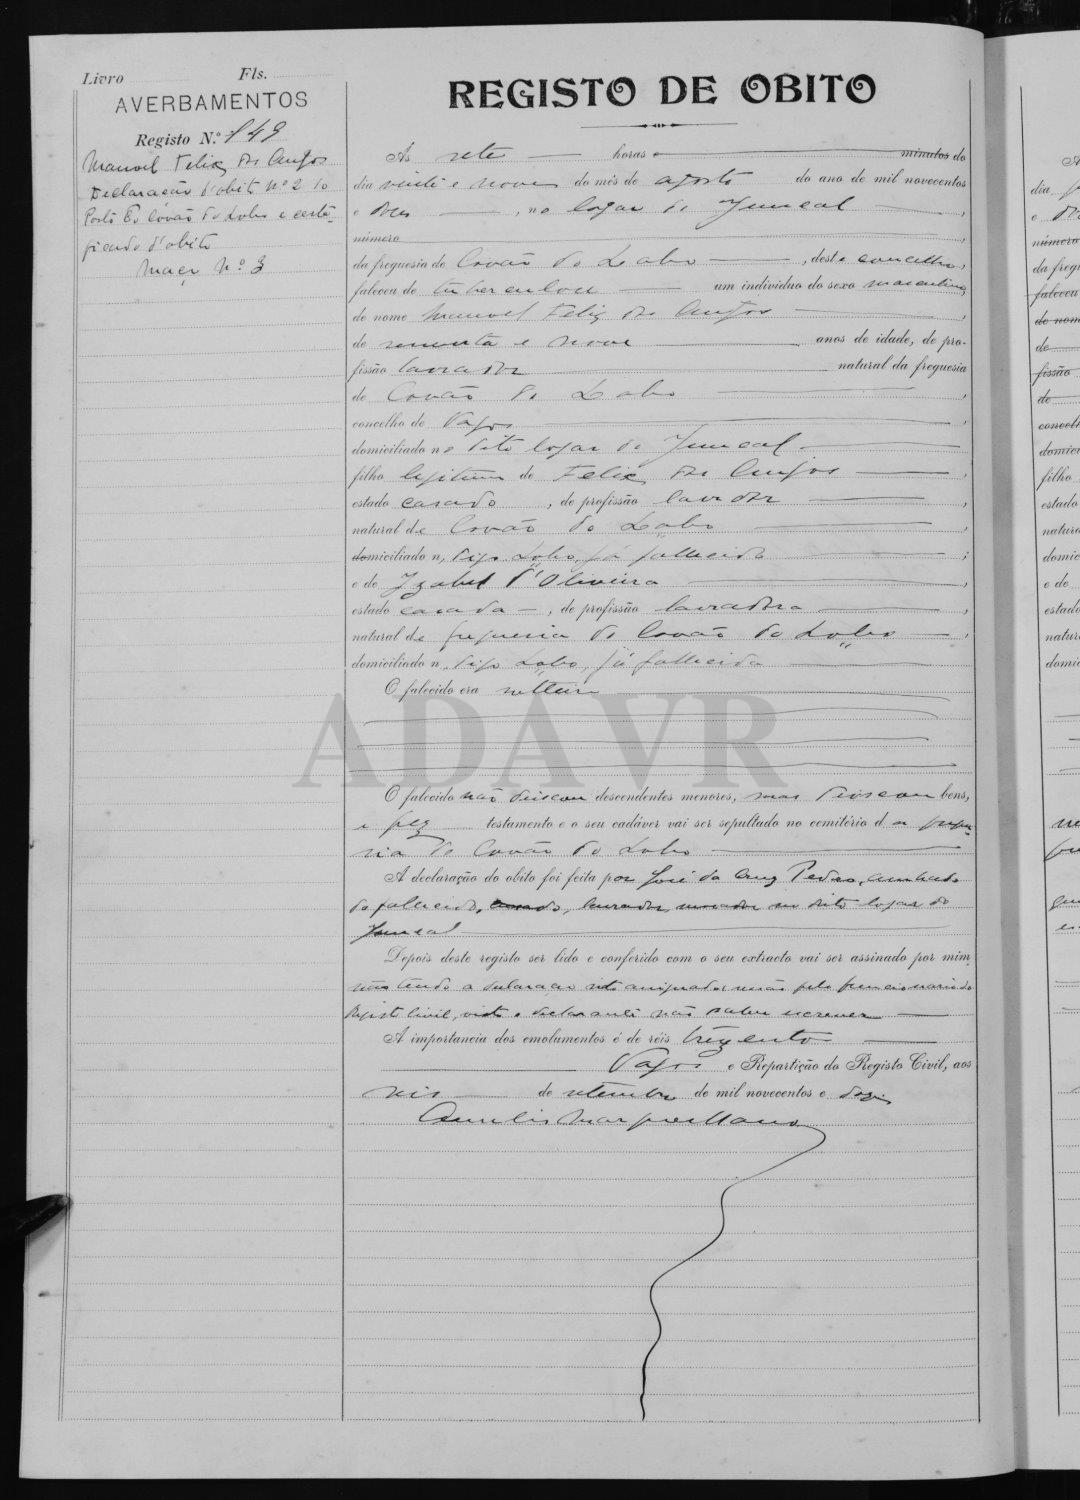 Livro Fls.
AVERBAMENTOS
Registo N.º 149
Manoel Felix dos Anjos
Declaração d'obito nº 2 do
Posto do Covão do Lobo e certi-
ficado d'obito
Maço Nº 3
REGISTO DE OBITO
Ás sete horas e minutos do
dia vinte e nove do mês de agosto do ano de mil novecentos
e doze, no logar de Juncal,
número
da freguesia de Covão do Lobo, deste concelho,
faleceu de tuberculose um individuo do sexo masculino
de nome Manoel Felix dos Anjos,
de e nove anos de idade, de pro-
fissão lavrador natural da freguesia
de Covão do Lobo,
concelho de Vagos,
domiciliado no dito logar de Juncal
filho legitimo de Felix dos Anjos,
estado casado, de profissão lavrador,
natural de Covão do Lobo,
domiciliado n, digo Lobo, já fallecido;
e de Izabel d'Oliveira,
estado casada, de profissão lavradora,
natural da freguesia do Covão do Lobo,
domiciliado n, digo Lobo, já fallecida
O falecido era solteiro
ADAVR
O falecido não deixou descendentes menores, mas deixou bens,
e fez testamento e o seu cadáver vai ser sepultado no cemitério da fregue-
sia do Covão do Lobo
A declaração do obito foi feita por José da Cruz Pedro, cunhado
do fallecido, casado, lavrador, morador no dito logar do
Juncal
Depois deste registo ser lido e conferido com o seu extracto vai ser assinado por mim
não tendo a declaração sido assignada senão pelo funcionario do
Registo Civil, visto o declarante não saber escrever
A importancia dos emolumentos é de réis trezentos
Vagos e Repartição do Registo Civil, aos
seis de setembro de mil novecentos e doze